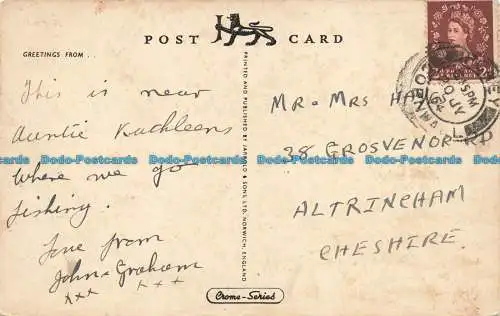 POST CARD
GREETINGS FROM...
This is near
Auntie Kathleens
where we go
fishing.
love from
John + Graham
xxx xxx
PRINTED AND PUBLISHED BY JARROLD & SONS LTD. NORWICH, ENGLAND
MR & MRS
38 GROSVENOR RD
ALTRINCHAM
CHESHIRE.
Crome-Series
CORNWALL
PM
JY
Dodo-Postcards Dodo-Postcards Dodo-Postcards Dodo-Postcards
Dodo-Postcards Dodo-Postcards Dodo-Postcards Dodo-Postcards